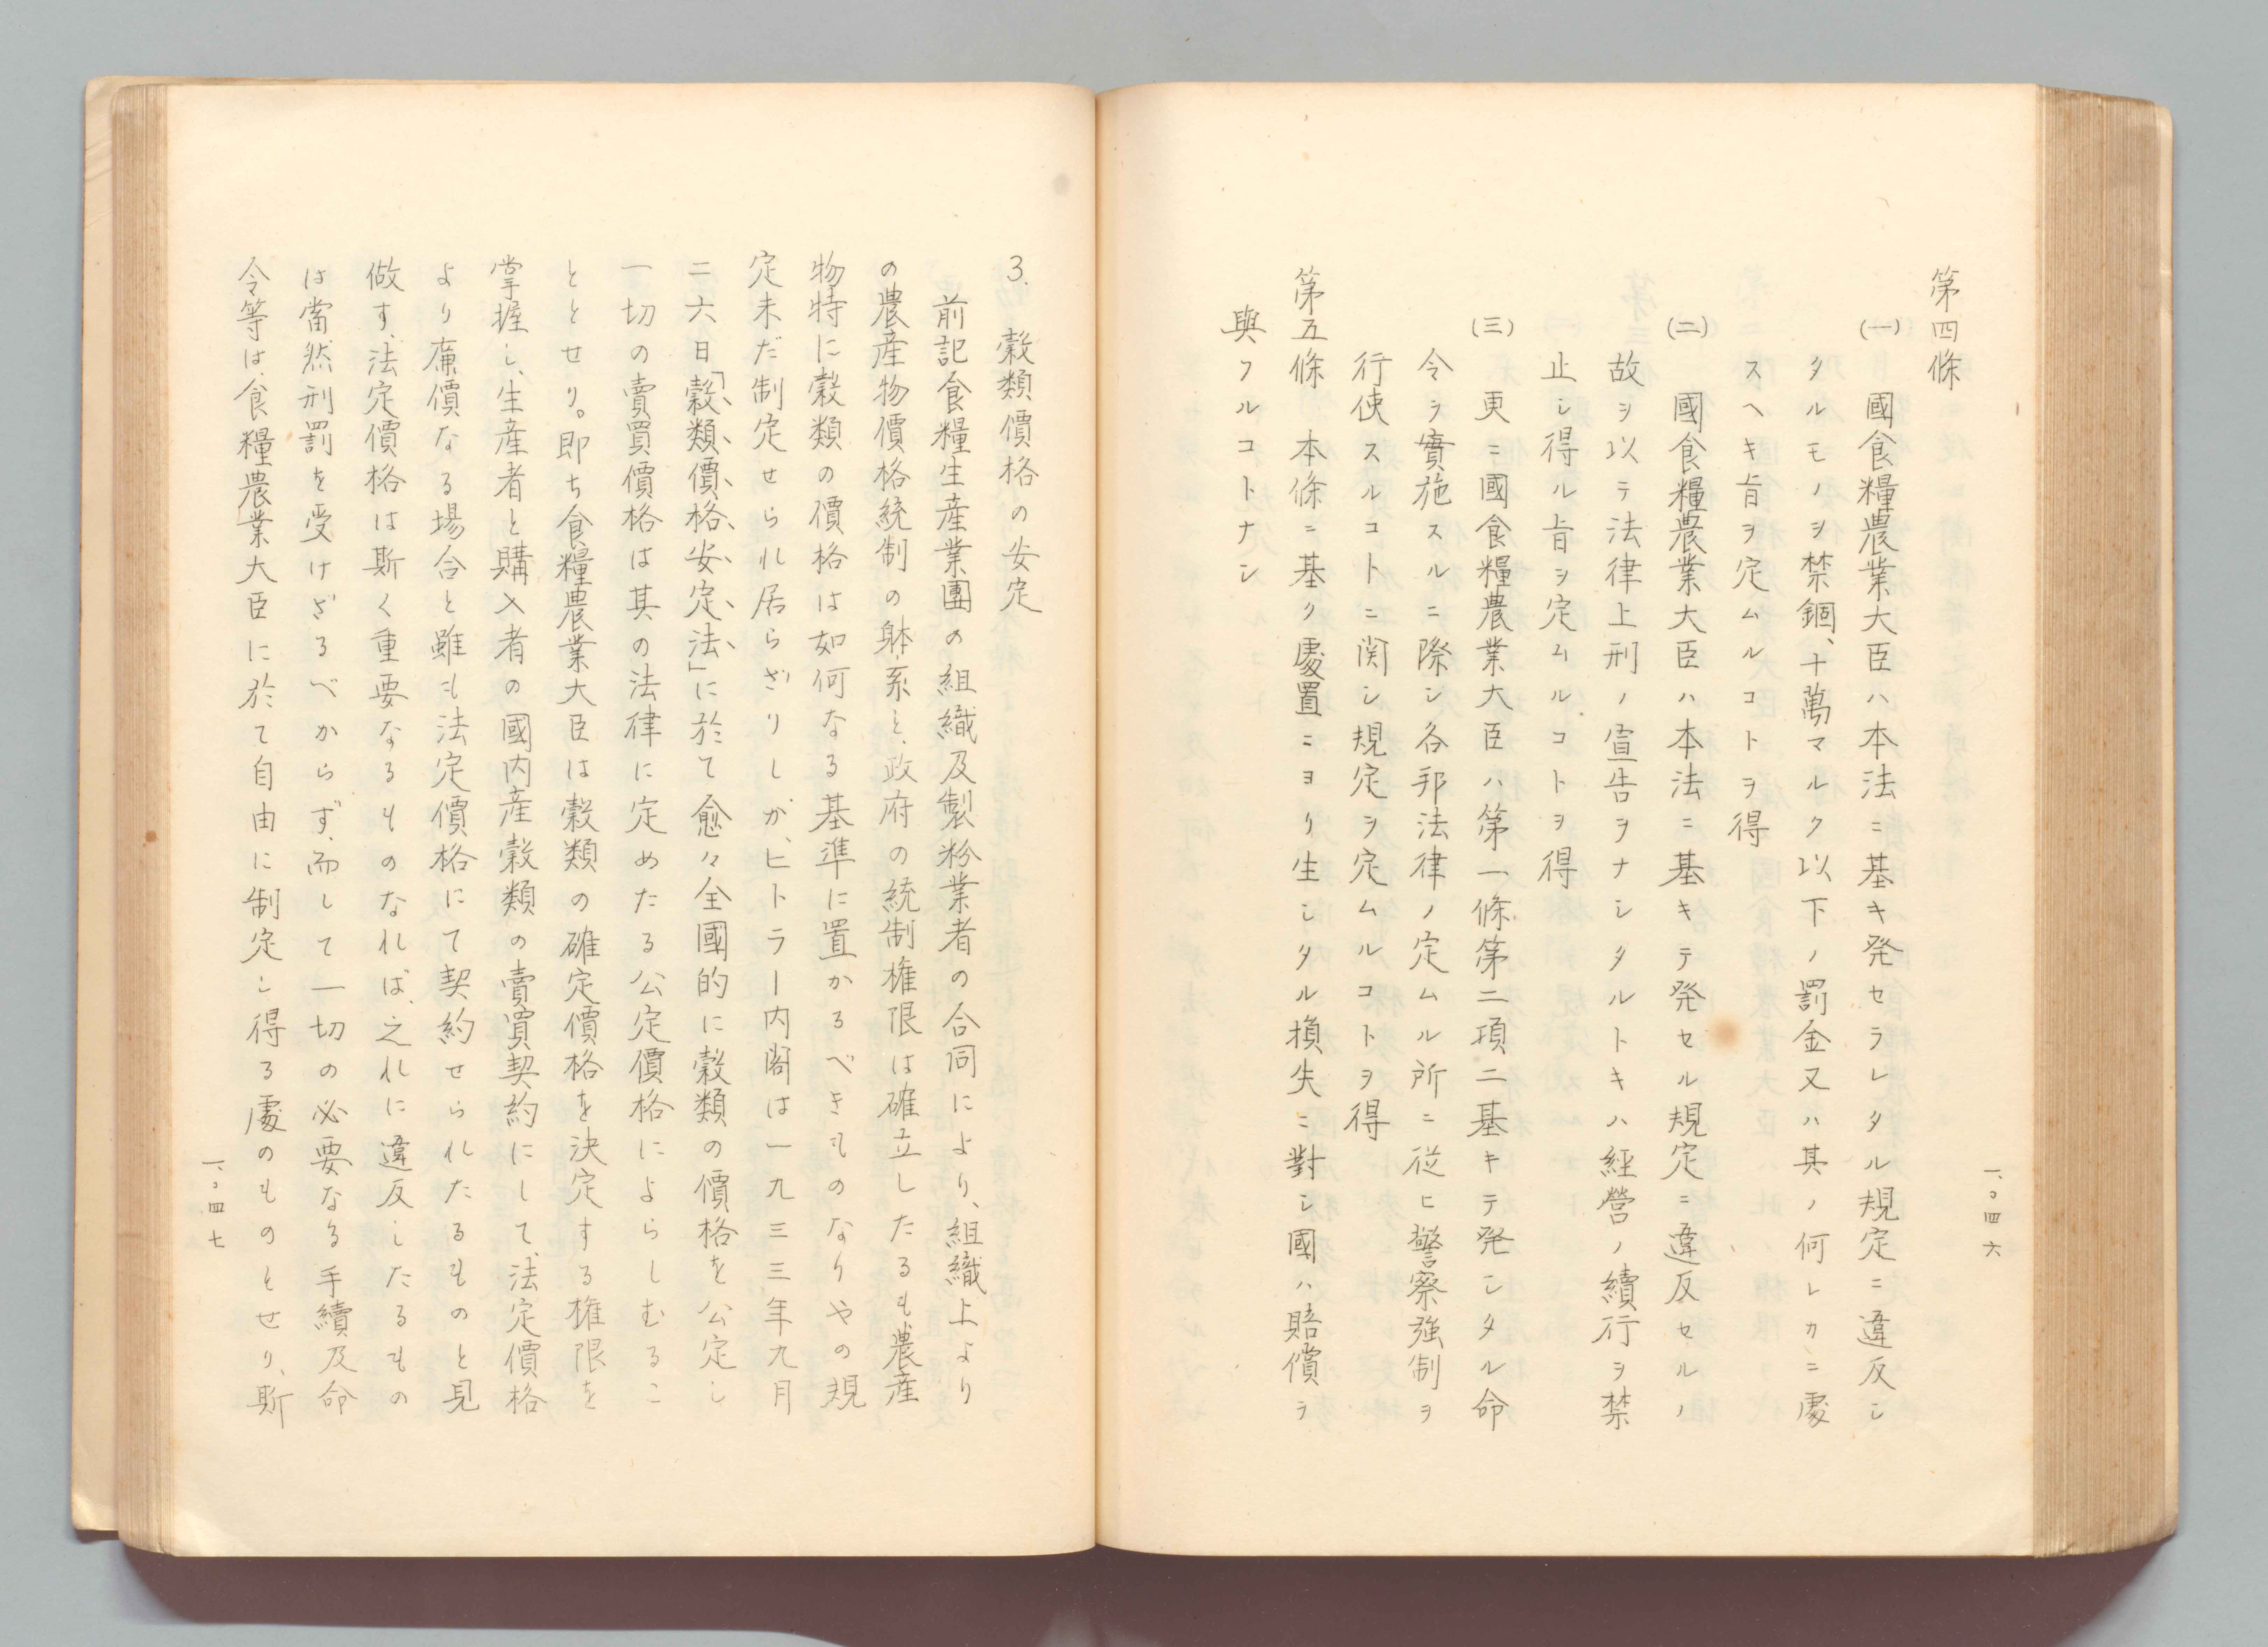 一、〇四六
第四條
(一) 國食糧農業大臣ハ本法ニ基キ発セラレタル規定ニ違反シ
タルモノヲ禁錮、十萬マルク以下ノ罰金又ハ其ノ何レカニ處
スヘキ旨ヲ定ムルコトヲ得
(二) 國食糧農業大臣ハ本法ニ基キテ発セル規定ニ違反セルノ
故ヲ以テ法律上刑ノ宣告ヲナシタルトキハ経營ノ續行ヲ禁
止シ得ル旨ヲ定ムルコトヲ得
(三) 更ニ國食糧農業大臣ハ第一條第二項ニ基キテ発シタル命
令ヲ實施スルニ際シ各邦法律ノ定ムル所ニ從ヒ警察強制ヲ
行使スルコトニ関シ規定ヲ定ムルコトヲ得
第五條 本條ニ基ク處置ニヨリ生シタル損失ニ對シ國ハ賠償ヲ
與フルコトナシ
3. 穀類價格の安定
前記食糧生産業團の組織及製粉業者の合同により、組織上より
の農産物價格統制の躰系と、政府の統制権限は確立したるも農産
物特に穀類の價格は如何なる基準に置かるべきものなりやの規
定未だ制定せられ居らざりしが、ヒトラー内閣は一九三三年九月
二六日「穀類價格安定法」に於て愈々全國的に穀類の價格を公定し
一切の賣買價格は其の法律に定めたる公定價格によらしむるこ
ととせり。即ち食糧農業大臣は穀類の確定價格を決定する権限を
掌握し、生産者と購入者の國内産穀類の賣買契約にして、法定價格
より廉價なる場合と雖も法定價格にて契約せられたるものと見
做す、法定價格は斯く重要なるものなれば、之れに違反したるもの
は當然刑罰を受けざるべからず、而して一切の必要なる手續及命
令等は食糧農業大臣に於て自由に制定し得る處のものとせり、斯
一、〇四七